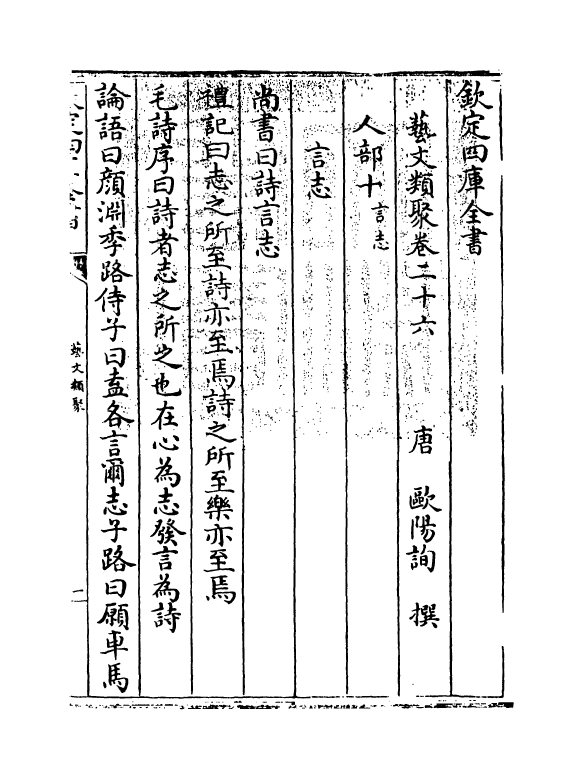 欽定四庫全書
藝文類聚卷二十六　唐　歐陽詢　撰
人部十言志
言志
尚書曰詩言志
禮記曰志之所至詩亦至焉詩之所至樂亦至焉
毛詩序曰詩者志之所之也在心為志發言為詩
論語曰顔淵季路侍子曰盍各言爾志子路曰願車馬
藝文類聚